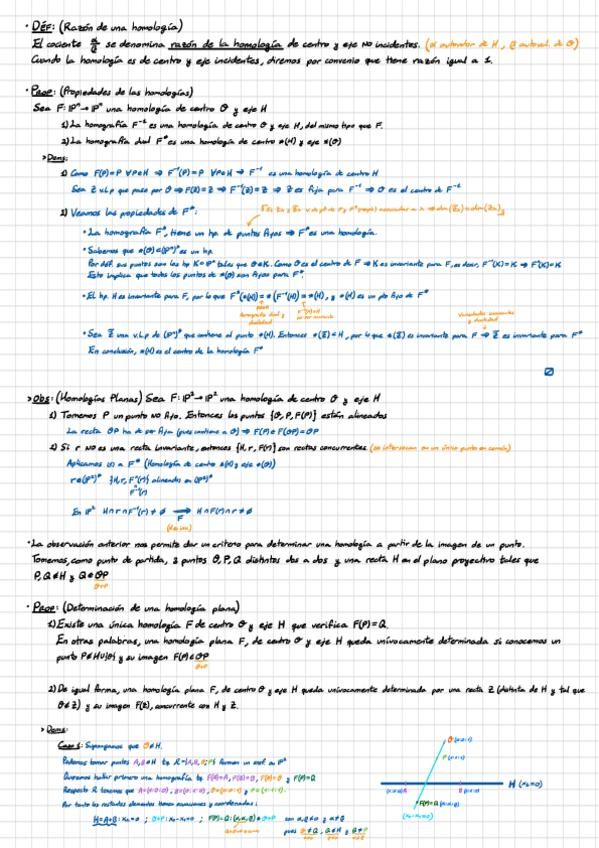 · DÉF: (Razón de una homología)
El cociente α/β se denomina razón de la homología de centro y eje no incidentes. (α autovalor de H, β autoval. de O)
Cuando la homología es de centro y eje incidentes, diremos por convenio que tiene razón igual a 1.
· PROP: (Propiedades de las homologías)
Sea F: ℙⁿ → ℙⁿ una homología de centro O y eje H
1) La homografía F⁻¹ es una homología de centro O y eje H, del mismo tipo que F.
2) La homografía dual F* es una homología de centro *(H) y eje *(O)
> Dems:
1) Como F(P)=P ∀P∈H ⇒ F⁻¹(P)=P ∀P∈H ⇒ F⁻¹ es una homología de centro H
Sea Z v.l.p que pase por O ⇒ F(Z)=Z ⇒ F⁻¹(Z)=Z ⇒ Z es fija para F⁻¹ ⇒ O es el centro de F⁻¹
2) Veamos las propiedades de F*:
· La homografía F*, tiene un hp. de puntos fijos ⇒ F* es una homología.
· Sabemos que *(O)⊂(ℙⁿ)* es un hp.
Por def. sus puntos son los hp K⊂ℙⁿ tales que O∈K. Como O es el centro de F ⇒ K es invariante para F, es decir, F⁻¹(K)=K ⇒ F*(K)=K
Esto implica que todos los puntos de *(O) son fijos para F*.
· El hp. H es invariante para F, por lo que F*(*(H)) = *(F⁻¹(H)) = *(H), y *(H) es un pto fijo de F*
· Sea Z̄ una v.l.p de (ℙⁿ)* que contiene al punto *(H). Entonces *(Z̄)⊂H, por lo que *(Z̄) es invariante para F ⇒ Z̄ es invariante para F*
En conclusión, *(H) es el centro de la homología F*
> OBS: (Homologías Planas) Sea F: ℙ² → ℙ² una homología de centro O y eje H
1) Tomemos P un punto no fijo. Entonces los puntos {O, P, F(P)} están alineados
La recta OP ha de ser fija (pues contiene a O) ⇒ F(P)∈F(OP)=OP
2) Si r no es una recta invariante, entonces {H, r, F(r)} son rectas concurrentes (se intersecan en un único punto en común)
Aplicamos 1) a F* (Homología de centro *(H) y eje *(O))
r∈(ℙ²)* {H, r, F*(r)} alineados en (ℙ²)*
F⁻¹(r)
En ℙ² H∩r∩F⁻¹(r)≠∅ → H∩F(r)∩r≠∅
F
· La observación anterior nos permite dar un criterio para determinar una homología a partir de la imagen de un punto.
Tomemos, como punto de partida, 3 puntos O, P, Q distintos dos a dos y una recta H en el plano proyectivo tales que
P, Q∉H y Q∈OP
· PROP: (Determinación de una homología plana)
1) Existe una única homología F de centro O y eje H que verifica F(P)=Q.
En otras palabras, una homología plana F, de centro O y eje H queda unívocamente determinada si conocemos un
punto P∉H∪{O} y su imagen F(P)∈OP
2) De igual forma, una homología plana F, de centro O y eje H queda unívocamente determinada por una recta Z (distinta de H y tal que
O∉Z) y su imagen F(Z), concurrente con H y Z.
> Dems:
Caso 1: Supongamos que O∉H.
Queremos hallar primero una homografía tq F(A)=A, F(B)=B, F(O)=O y F(P)=Q
H (x₂=0)